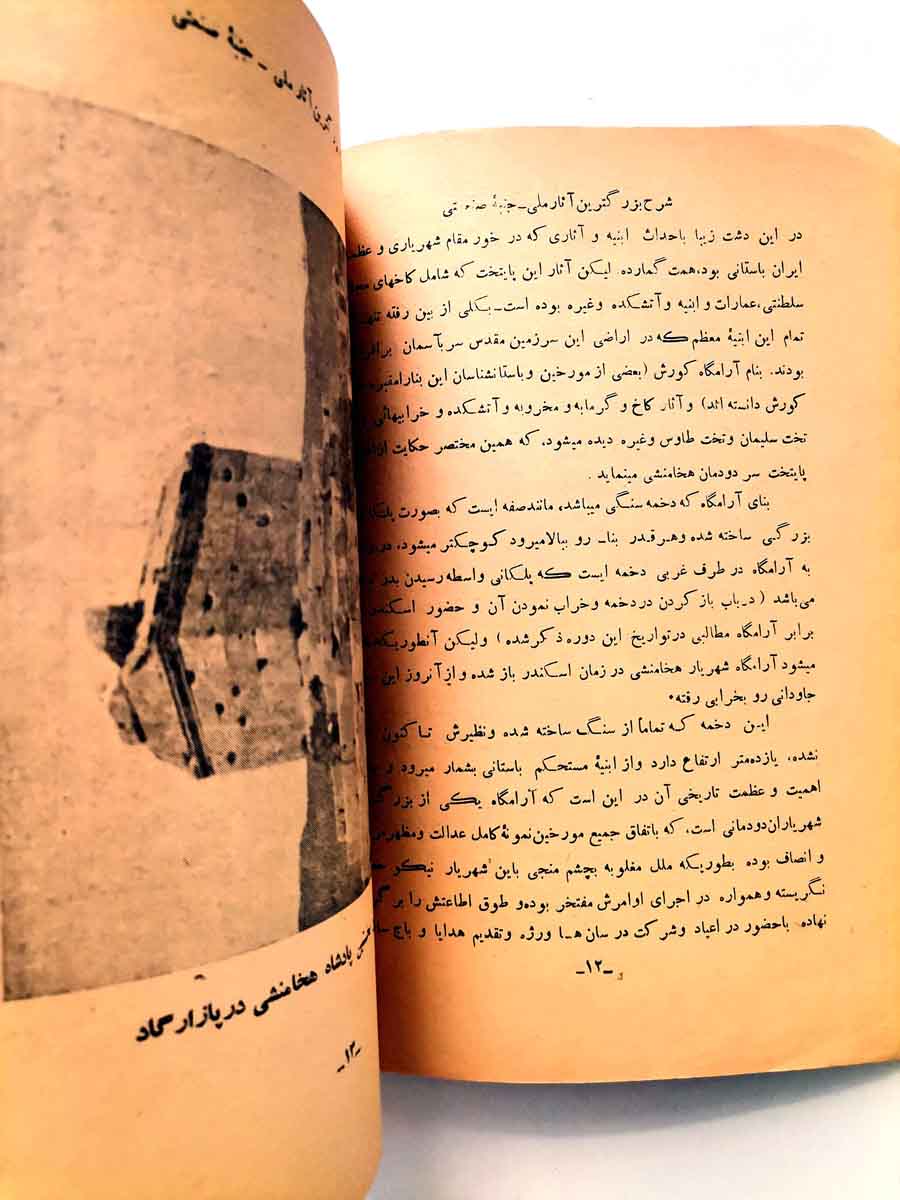 شرح بزرگترین آثار ملی ـ جنبهٔ صنعتی
در این دشت زیبا باحداث ابنیه و آثاری که در خور مقام شهریاری و
ایران باستانی بود، همت گمارده. لیکن آثار این پایتخت که شامل کاخهای
سلطنتی، عمارات و ابنیه و آتشکده وغیره بوده است ـ بکلی از بین رفته
تمام این ابنیهٔ معظم که در اراضی این سرزمین مقدس سر بآسمان
بودند. بنام آرامگاه کورش (بعضی از مورخین و باستانشناسان این بنارا
کورش دانسته اند) و آثار کاخ و گرمابه و مخروبه و آتشکده و خرابیهائی
تخت سلیمان وتخت طاوس وغیره دیده میشود، که همین مختصر حکایت از
پایتخت سر دودمان هخامنشی مینماید .
بنای آرامگاه که دخمه سنگی میباشد، مانندصفه ایست که بصورت
بزرگی ساخته شده وهر قدر بنا رو ببالامیرود کوچکتر میشود،
به آرامگاه در طرف غربی دخمه ایست که پلکانی واسطه رسیدن
می‌باشد (در باب باز کردن در دخمه وخراب نمودن آن و حضور
برابر آرامگاه مطالبی در تواریخ این دوره ذکر شده) ولیکن آنطوریکه
میشود آرامگاه شهریار هخامنشی در زمان اسکندر باز شده و از آنروز این
جاودانی رو بخرابی رفته.
این دخمه که تماماً از سنگ ساخته شده و نظیرش تا کنون
نشده، یازده‌متر ارتفاع دارد واز ابنیهٔ مستحکم باستانی بشمار میرود و
اهمیت و عظمت تاریخی آن در این است که آرامگاه یکی از
شهریاران‌دودمانی است، که باتفاق جمیع مورخین نمونهٔ کامل عدالت
و انصاف بوده بطوریکه ملل مغلوبه بچشم منجی باین شهریار نیکو
نگریسته وهمواره در اجرای اوامرش مفتخر بوده و طوق اطاعتش را بر
نهاده باحضور در اعیاد وشرکت در سان ها ورژه وتقدیم هدایا و باج
ـ۱۲ـ
آثار ملی ـ جنبهٔ صنعتی
پادشاه هخامنشی در پازارگاد
ـ۱۳ـ